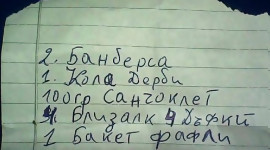 2. Банберса
1. Кола Дерби
100гр Санчоклет
4. Близалк 4 Дъфки
1 Бакет фафли